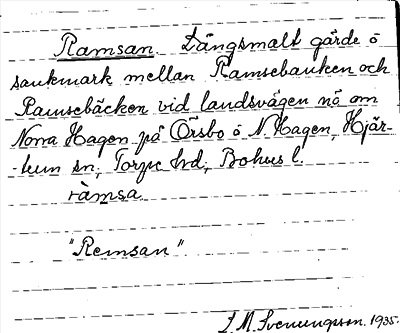 Ramsan. Långsmalt gärde ö
sankmark mellan Ramsebanken och
Ramsebäcken vid landsvägen nö om
Norra Hagen på Örsbo ö N. Hagen, Hjär-
-tum sn, Torpe hd, Bohus l.
ràmsa.
"Remsan".
J M. Svenungsson. 1935.